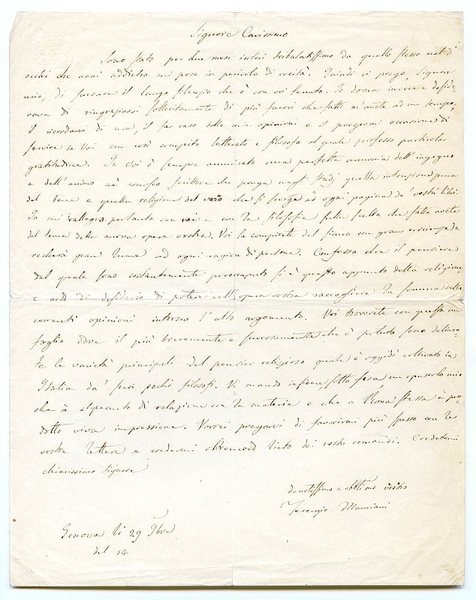 Signore Carissimo
Sono stato per due mesi interi disturbatissimo da quello stesso mal d'
occhi che anni addietro mi pose in pericolo di cecità. Quindi vi prego, Signor
mio, di scusare il lungo silenzio che è con voi tenuto. Io doveva invece e deside-
rava di ringraziarvi sollecitamente di più favori che fatti m'avete ad un tempo,
il ricordarvi di me, il far caso delle mie opinioni e il porgermi occasione di
servire a Voi così compito letterato e filosofo al quale professo particolar
gratitudine. In voi è sempre ammirata una perfetta armonia dell'ingegno
e dell'animo nè conosco scrittore che ponga negli studj quella intenzione pura
del bene e quella religione del vero che si scorge ad ogni pagina de' vostri libri.
Io mi rallegro pertanto con voi e con la filosofia della scelta che fatta avete
del tema della nuova opera vostra. Voi la compirete del sicuro con gran
recherà gran bene ad ogni ragion di persone. Confesso che il pensiero
dal quale sono costantemente preoccupato si è questo appunto della religione
e ardo di desiderio di potere nell'opera vostra raccogliere la somma delle
correnti opinioni intorno l'alto argomento. Voi troverete con questa un
foglio dove il più brevemente e succosamente che è potuto sono delinea-
te le varietà principali del pensier religioso quale è oggidì coltivato in
Italia da' suoi pochi filosofi. Vi mando insieme sotto fascia un opuscolo mio
che à alquanto di relazione con la materia e che a Roma stessa à pro-
dotto viva impressione. Vorrei pregarvi di favorirmi più spesso con le
vostre lettere e credermi oltremodo lieto dei vostri comandi. Credetemi
chiarissimo Signore
devotissimo e obbl.mo vostro
Terenzio Mamiani
Genova li 29 9bre
del 54.